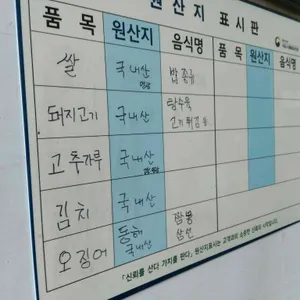 원산지 표시판
품 목 원산지 음식명 품 목 원산지 음식명
쌀 국내산 밥 죽류
돼지고기 국내산 탕수육
고기튀김 등
고추가루 국내산
김치 국내산
오징어 동해 짬뽕
국내산
『신뢰를 산다 가치를 판다』 원산지표시는 고객과의 소중한 신뢰의 시작입니다.